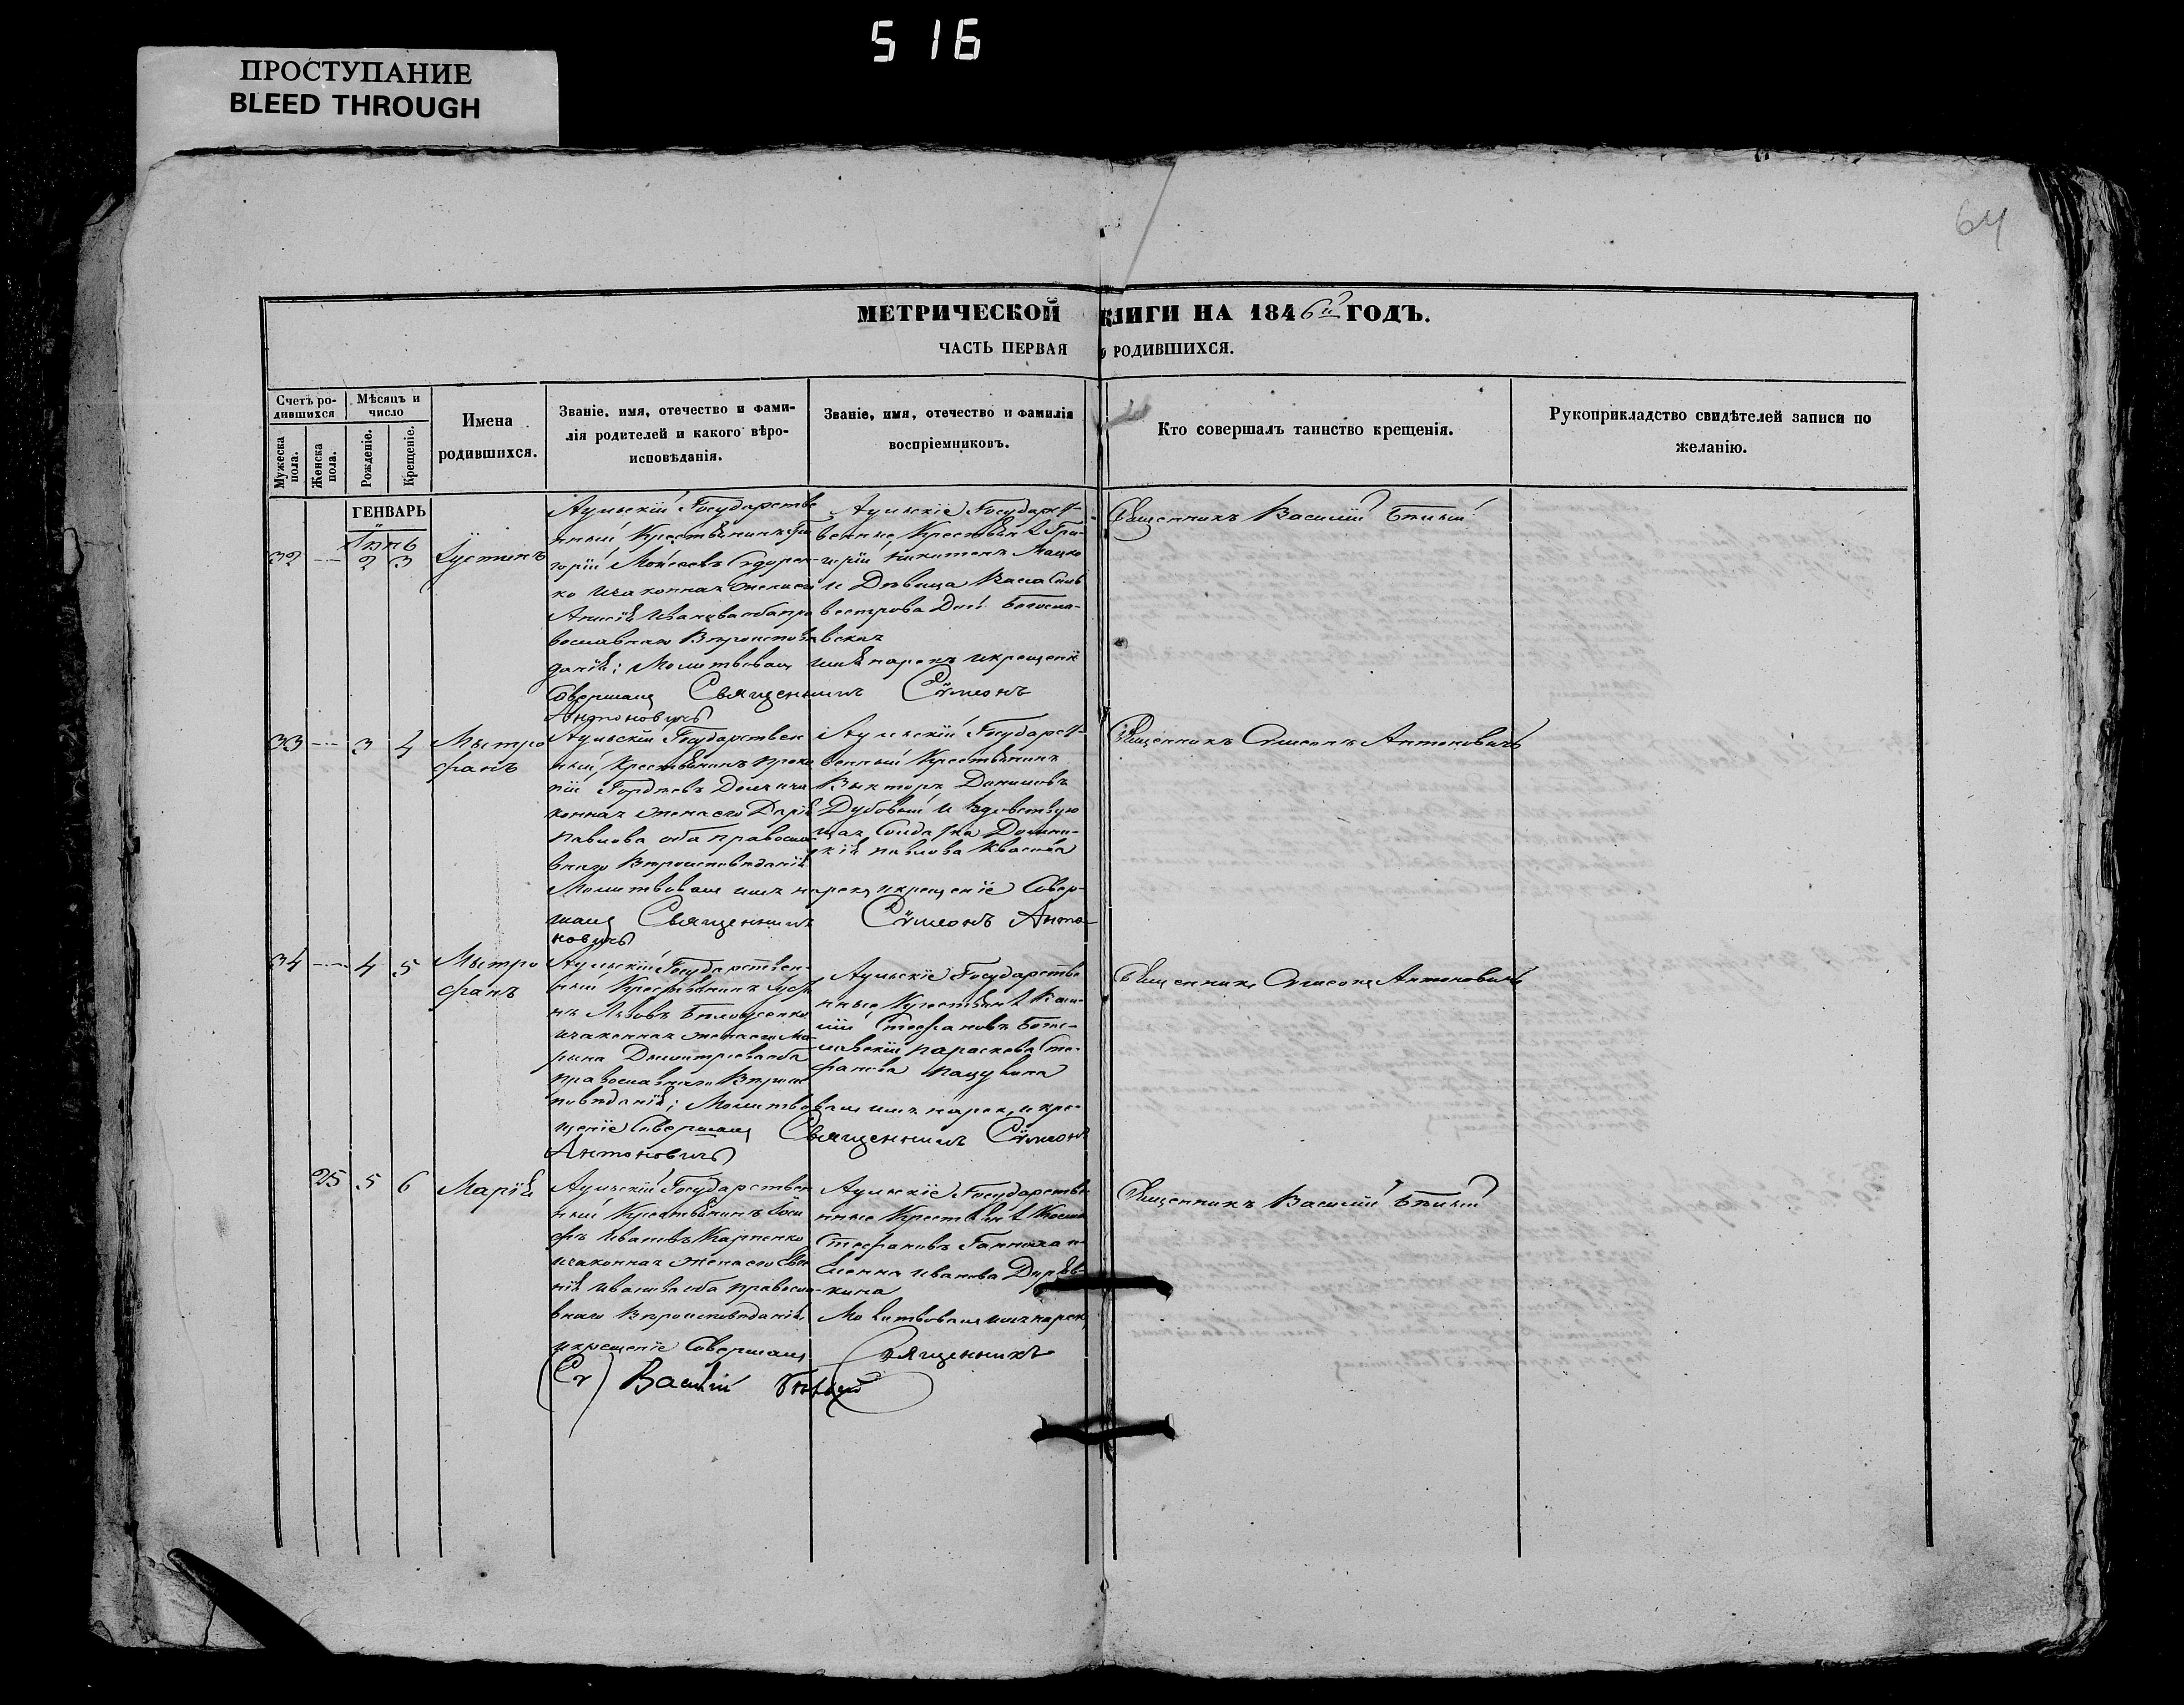 5 16
ПРОСТУПАНИЕ
BLEED THROUGH
64
МЕТРИЧЕСКОЙ КНИГИ НА 1846й ГОДЪ.
ЧАСТЬ ПЕРВАЯ О РОДИВШИХСЯ.
Счетъ ро-
дившихся
Мужеска пола.
Женска пола.
Мѣсяцъ и
число
Рожденіе.
Крещеніе.
Имена
родившихся.
Званіе, имя, отечество и фами-
лія родителей и какого вѣро-
исповѣданія.
Званіе, имя, отечество и фамилія
воспріемниковъ.
Кто совершалъ таинство крещенія.
Рукоприкладство свидѣтелей записи по
желанію.
ГЕНВАРЬ
32 2 3 Іустинъ
Аульскій Государстве
нный Крестьянинъ Гри
горій Моѵсеевъ Сидорен-
ко и законная жена его
Анисія Иванова оба пра
вославнаго Вѣроисповѣ
данія; Молитвовалъ имя нарекъ и крещеніе
Совершалъ Священникъ Сѷмеонъ
Антоновичъ
Аульскіе Государст-
венные Крестьяне Гри-
горій Никитенъ Мацко
и Дѣвица Васса Силь
вестрова Дочь Богосла-
вская
Священникъ Василій Бѣлый
33 3 4 Мытро
фанъ
Аульскій Государствен
ный Крестьянинъ Проко
пій Гордѣевъ и за
конная жена его Дарія
Павлова оба православ
внаго Вѣроисповѣданія
Молитвовалъ имя нарекъ и крещеніе Совер-
шалъ Священникъ Сѷмеонъ Анто-
новичъ
Аульскій Государст-
венный Крестьянинъ
Выкторъ Даниловъ
Дубовый и вдовствую
щая Солдатка Домни-
кія Павлова Квасова
Священникъ Сѷмеонъ Антоновичъ
34 4 5 Мытро
фанъ
Аульскій Государствен-
ный Крестьянинъ
Львовъ Бѣлоусенко
и законная жена его Ма
рина Димитріева оба
православнаго Вѣроис
повѣданія; Молитвовалъ имя нарекъ и кре-
щеніе Совершалъ Священникъ Сѷмеонъ
Антоновичъ
Аульскіе Государстве
нные Крестьяне
Стефановъ Богос-
лавскій Параскева Сте-
фанова
Священникъ Сѷмеонъ Антоновичъ
25 5 6 Марія
Аульскій Государствен
ный Крестьянинъ Іоси
фъ Ивановъ Карпенко
и законная жена его Евге
нія Иванова оба православ-
внаго Вѣроисповѣданія,
и крещеніе Совершалъ Священникъ
Василій Бѣлый
Аульскіе Государстве
нные Крестьяне Косма
Стефановъ
Елена Иванова
кина
Молитвовалъ имя нарекъ
Священникъ Василій Бѣлый